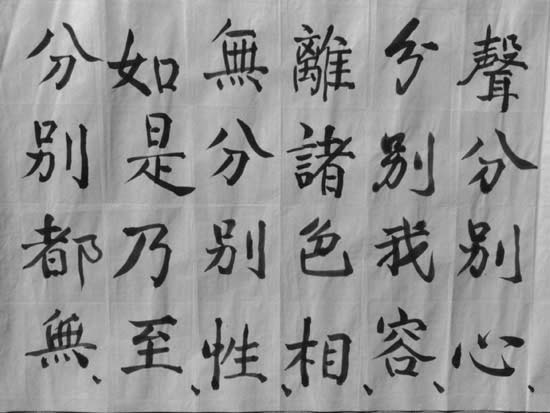 聲分別心、
分別我容、
離諸色相、
無分別性、
如是乃至、
分別都無、